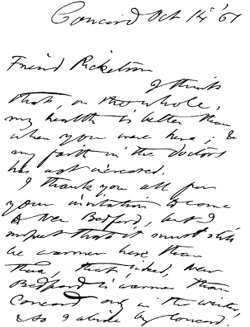 Concord Oct 14 '61
Friend Ricketson
I think
that, on the whole,
my health is better than
when you were here; &
my faith in the doctors
has not increased.
I thank you all for
your invitation to come
to New Bedford, but I
suspect that it must still
be warmer here than
there, that, indeed, New
Bedford is warmer than
Concord only in the winter,
& so I abide by Concord.